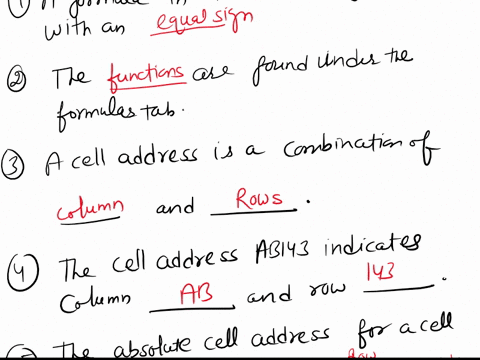 ① A formula in
with an equal sign
② The functions are found under the
formulas tab.
③ A cell address is a combination of
column and Rows.
④ The cell address AB143 indicates
Column AB and row 143.
The absolute cell address for a cell
Row